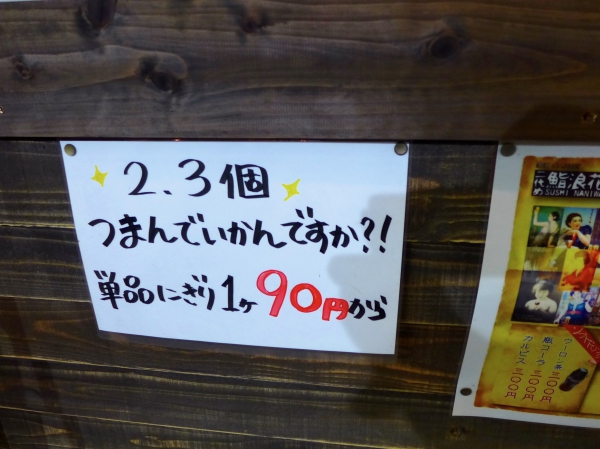 2.3個
つまんでいかんですか?!
単品にぎり1ヶ90円から
二代め
鮨浪花
SUSHI NANIW
ウーロン茶 三〇〇円
瓶コーラ 三〇〇円
カルピス 三〇〇円